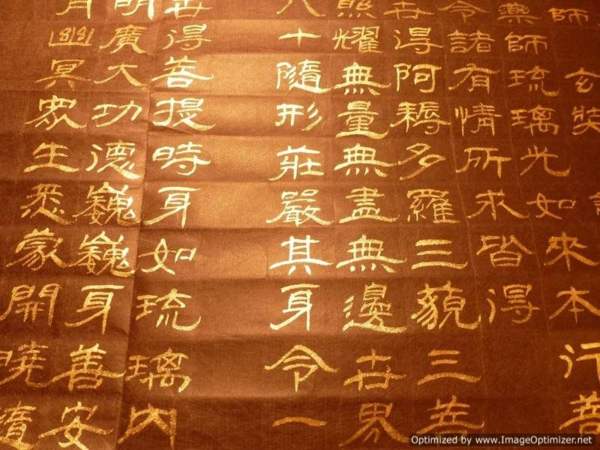 師玄奘
藥師琉璃光如來本行菩
令諸有情所求皆得
世得阿耨多羅三藐三菩
耀無量無盡無邊世界
八十隨形莊嚴其身令一
世得菩提時身如琉璃內
明廣大功德巍巍身善安
月幽冥眾生悉蒙開曉隨
Optimized by www.ImageOptimizer.net